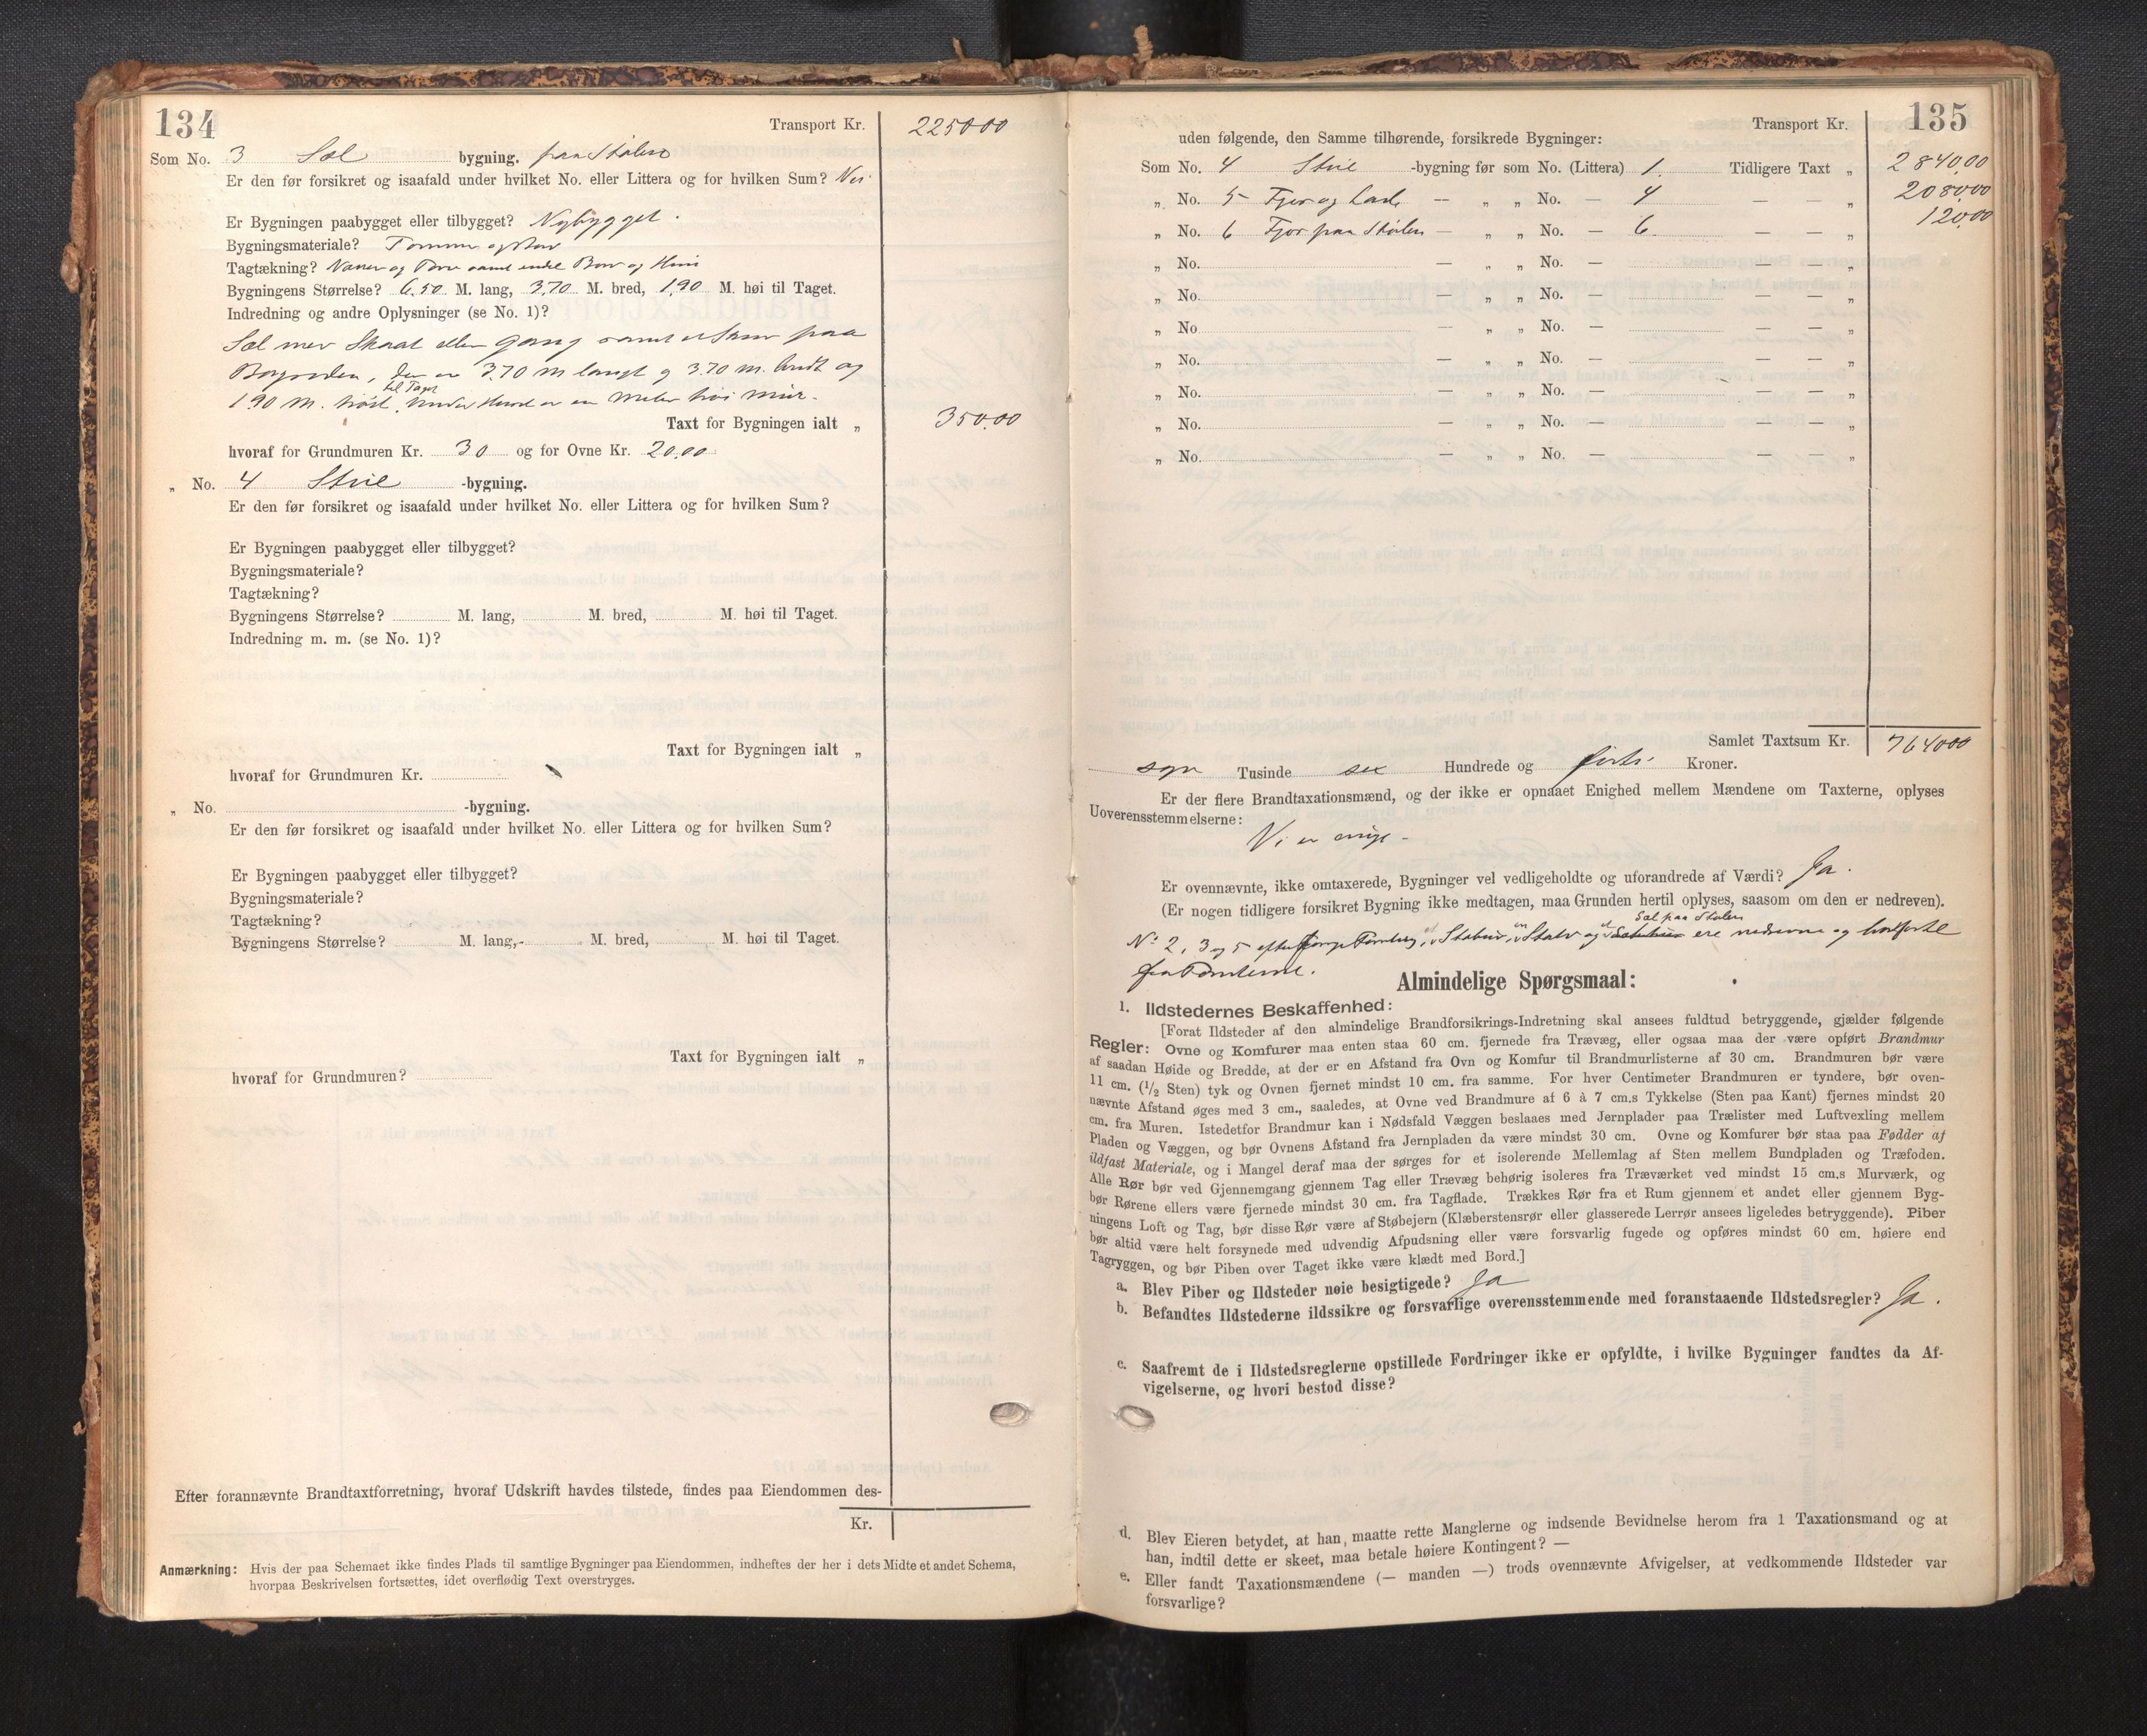 134
Transport Kr. 2250 00
Som No. 3 Sæl bygning. paa Stølen
Er den før forsikret og isaafald under hvilket No. eller Littera og for hvilken Sum? Nei
Er Bygningen paabygget eller tilbygget? Nybygget.
Bygningsmateriale? Tømmer og
Tagtækning? Næver og Torv samt endel Bor og
Bygningens Størrelse? 6.50 M. lang, 3.70 M. bred, 1.90 M. høi til Taget.
Indredning og andre Oplysninger (se No. 1)?
Sæl med Skaat eller gang samt et paa
der er 3.70 m langt og 3.70 m. bredt og
til Taget
1.90 M. høit, under er en Meter høi mur.
Taxt for Bygningen ialt „ 350.00
hvoraf for Grundmuren Kr. 30 og for Ovne Kr. 20.00
„ No. 4 Stue -bygning.
Er den før forsikret og isaafald under hvilket No. eller Littera og for hvilken Sum?
Er Bygningen paabygget eller tilbygget?
Bygningsmateriale?
Tagtækning?
Bygningens Størrelse? M. lang, M. bred, M. høi til Taget.
Indredning m. m. (se No. 1)?
Taxt for Bygningen ialt „
hvoraf for Grundmuren Kr.
„ No. -bygning.
Er den før forsikret og isaafald under hvilket No. eller Littera og for hvilken Sum?
Er Bygningen paabygget eller tilbygget?
Bygningsmateriale?
Tagtækning?
Bygningens Størrelse? M. lang, M. bred, M. høi til Taget.
Taxt for Bygningen ialt „
hvoraf for Grundmuren?
Efter forannævnte Brandtaxtforretning, hvoraf Udskrift havdes tilstede, findes paa Eiendommen des-
Kr.
Anmærkning: Hvis der paa Schemaet ikke findes Plads til samtlige Bygninger paa Eiendommen, indheftes der her i dets Midte et andet Schema,
hvorpaa Beskrivelsen fortsættes, idet overflødig Text overstryges.
135
Transport Kr.
uden følgende, den Samme tilhørende, forsikrede Bygninger:
Som No. 4 Stue -bygning før som No. (Littera) 1. Tidligere Taxt „ 2840,00
„ No. 5 Fjør og Lade — „ „ No. — 4 — — „ 2080,00
„ No. 6 Fjør paa Stølen — „ „ No. — 6 — — „ 120,00
„ No. — „ „ No. — — — „
„ No. — „ „ No. — — — „
„ No — „ „ No. — — — „
„ No. — „ „ No. — — — „
„ No. — „ „ No. — — — „
„ No. — „ „ No. — — — „
„ No. — „ „ No. — — — „
Samlet Taxtsum Kr. 7640 00
syv Tusinde sex Hundrede og førti Kroner.
Er der flere Brandtaxationsmænd, og der ikke er opnaaet Enighed mellem Mændene om Taxterne, oplyses
Uoverensstemmelserne:
Vi er enige -
Er ovennævnte, ikke omtaxerede, Bygninger vel vedligeholdte og uforandrede af Værdi? Ja.
(Er nogen tidligere forsikret Bygning ikke medtagen, maa Grunden hertil oplyses, saasom om den er nedreven).
Sæl paa Stølen
No 2, 3 og 5 efter forrige Stabur, en Stald og ere nedrevne og bortførte
fra Tomterne.
Almindelige Spørgsmaal:
1. Ildstedernes Beskaffenhed:
[Forat Ildsteder af den almindelige Brandforsikrings-Indretning skal ansees fuldtud betryggende, gjælder følgende
Regler: Ovne og Komfurer maa enten staa 60 cm. fjernede fra Trævæg, eller ogsaa maa der være opført Brandmur
af saadan Høide og Bredde, at der er en Afstand fra Ovn og Komfur til Brandmurlisterne af 30 cm. Brandmuren bør være
11 cm. (1/2 Sten) tyk og Ovnen fjernet mindst 10 cm. fra samme. For hver Centimeter Brandmuren er tyndere, bør oven-
nævnte Afstand øges med 3 cm., saaledes, at Ovne ved Brandmure af 6 à 7 cm.s Tykkelse (Sten paa Kant) fjernes mindst 20
cm. fra Muren. Istedetfor Brandmur kan i Nødsfald Væggen beslaaes med Jernplader paa Trælister med Luftvexling mellem
Pladen og Væggen, og bør Ovnens Afstand fra Jernpladen da være mindst 30 cm. Ovne og Komfurer bør staa paa Fødder af
ildfast Materiale, og i Mangel deraf maa der sørges for et isolerende Mellemlag af Sten mellem Bundpladen og Træfoden.
Alle Rør bør ved Gjennemgang gjennem Tag eller Trævæg behørig isoleres fra Træværket ved mindst 15 cm.s Murværk, og
bør Rørene ellers være fjernede mindst 30 cm. fra Tagflade. Trækkes Rør fra et Rum gjennem et andet eller gjennem Byg-
ningens Loft og Tag, bør disse Rør være af Støbejern (Klæberstensrør eller glasserede Lerrør ansees ligeledes betryggende). Piber
bør altid være helt forsynede med udvendig Afpudsning eller være forsvarlig fugede og opføres mindst 60 cm. høiere end
Tagryggen, og bør Piben over Taget ikke være klædt med Bord.]
a. Blev Piber og Ildsteder nøie besigtigede? Ja
b. Befandtes Ildstederne ildssikre og forsvarlige overensstemmende med foranstaaende Ildstedsregler? Ja.
c. Saafremt de i Ildstedsreglerne opstillede Fordringer ikke er opfyldte, i hvilke Bygninger fandtes da Af-
vigelserne, og hvori bestod disse?
d. Blev Eieren betydet, at han maatte rette Manglerne og indsende Bevidnelse herom fra 1 Taxationsmand og at
han, indtil dette er skeet, maa betale høiere Kontingent? —
e. Eller fandt Taxationsmændene (— manden —) trods ovennævnte Afvigelser, at vedkommende Ildsteder var
forsvarlige?